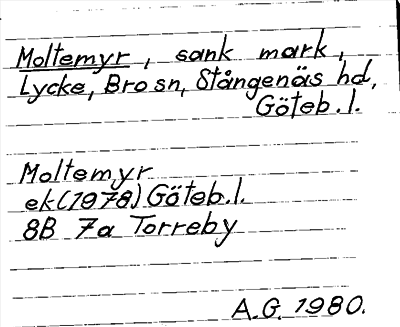 Moltemyr, sank mark,
Lycke, Bro sn, Stångenäs hd,
Göteb. l.
Moltemyr
ek (1978) Göteb. l.
8B 7a Torreby
A.G. 1980.